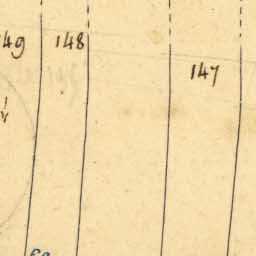 149 148
147